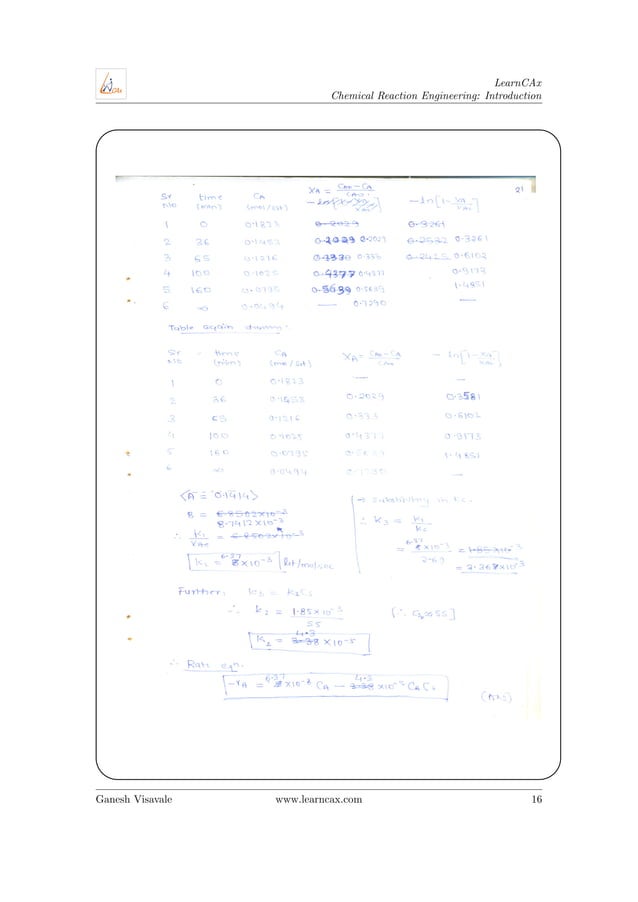 LearnCAx
Chemical Reaction Engineering: Introduction
21
Sr No time (min) CA (mol/lit) XA = CA0-CA / CA0 -ln[1- XA/XAe]
1 0 0.1823 0.2029 0.3261
2 36 0.1453 0.2029 0.2027 0.2532 0.3261
3 65 0.1216 0.3330 0.333 0.2425 0.6102
4 100 0.1025 0.4377 0.4377 0.9173
5 160 0.0795 0.5639 0.5639 1.4851
6 ∞ 0.0494 — 0.7290 —
Table again drawing:-
Sr No time (min) CA (mol/lit) XA = CA0-CA / CA0 - ln[1- XA/XAe]
1 0 0.1823 — —
2 36 0.1453 0.2029 0.3581
3 65 0.1216 0.333 0.6102
4 100 0.1025 0.4377 0.9173
5 160 0.0795 0.5639 1.4851
6 ∞ 0.0494 0.7290 —
<A = 0.1414>
B = 6.8502x10-3
8.7412x10-3
∴ K1/XAe = 6.8502x10-3
K1 = 6.37 x10-3 lit/mol sec
→ Substituting in Kc.
∴ K3 = K1/Kc
= 6.37 x10-3 / 2.69 = 1.85x10-3
= 2.368x10-3
Further, k3 = k2Cs
∴ k2 = 1.85x10-3 / 55 [∴ Cs≈55]
K2 = 4.3 3.38 x10-5
∴ Rate eqn.
-rA = 6.37 x10-3 CA — 4.3 3.38 x10-5 CR Cs
Ganesh Visavale www.learncax.com 16